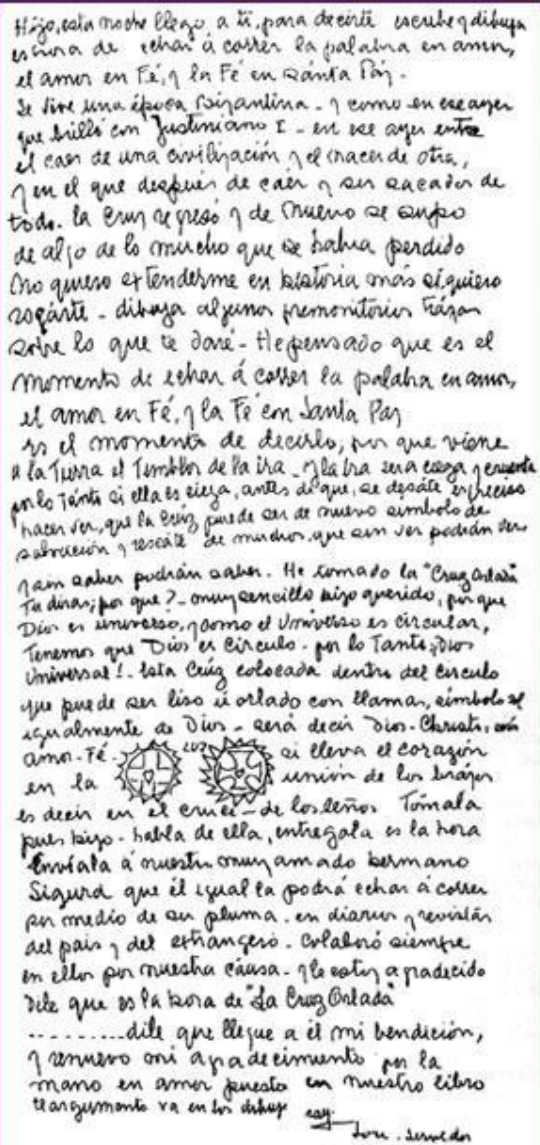 Hijo, esta noche llego a ti, para decirte escribe y dibuja
es hora de echar á correr la palabra en amor,
el amor en Fé, y la Fé en Santa Paz.
Se vive una época Bizantina - y como en ese ayer
que brilló con Justiniano I - en ese ayer entre
el caer de una civilización y el nacer de otra,
y en el que después de caer y ser sacador de
todo. la Cruz regresó y de nuevo se supo
de algo de lo mucho que se habia perdido
no quiero extenderme en historia más si quiero
rogárte - dibuja algunos premonitorios trázos
sobre lo que te daré - He pensado que es el
momento de echar á correr la palabra en amor,
el amor en Fé, y la Fé en Santa Paz
es el momento de decirlo, por que viene
a la Tierra el Temblor de la ira - y la ira sera ciega y cruenta
por lo Tánto si ella es ciega, antes de que, se desáte es preciso
hacer ver, que la Crúz puede ser de nuevo simbolo de
salvación y rescáte de muchos, que sin ver podrán ver
y sin saber podrán saber. He tomado la "Cruz Orlada"
Tu dirás; por que? - muy sencillo hijo querido, por que
Dios es universo, y como el Universo es circular,
Tenemos que Dios es Circulo - por lo Tanto ¡Dios
Universal! - Esta Crúz colocada dentro del circulo
que puede ser liso ú orlado con llamas, simbolo
igualmente de Dios - será decir Dios - Christi,
amor - Fé - si lleva el corazón
en la unión de los brázos
es decir en el cruce - de los leños Tómala
pues hijo - habla de ella, entregala es la hora
Envíala á nuestro muy amado hermano
Sigurd que él igual la podrá echar á correr
por medio de su pluma. en diarios y revistás
del pais y del extrangero. Colaboró siempre
en ellos por nuestra cáusa. y le estoy agradecido
Dile que es la hora de "La Cruz Orlada"
.........dile que llegue a él mi bendición,
y renuevo mi agradecimiento por la
mano en amor puesta en nuestro libro
el argumento va en los dibuj